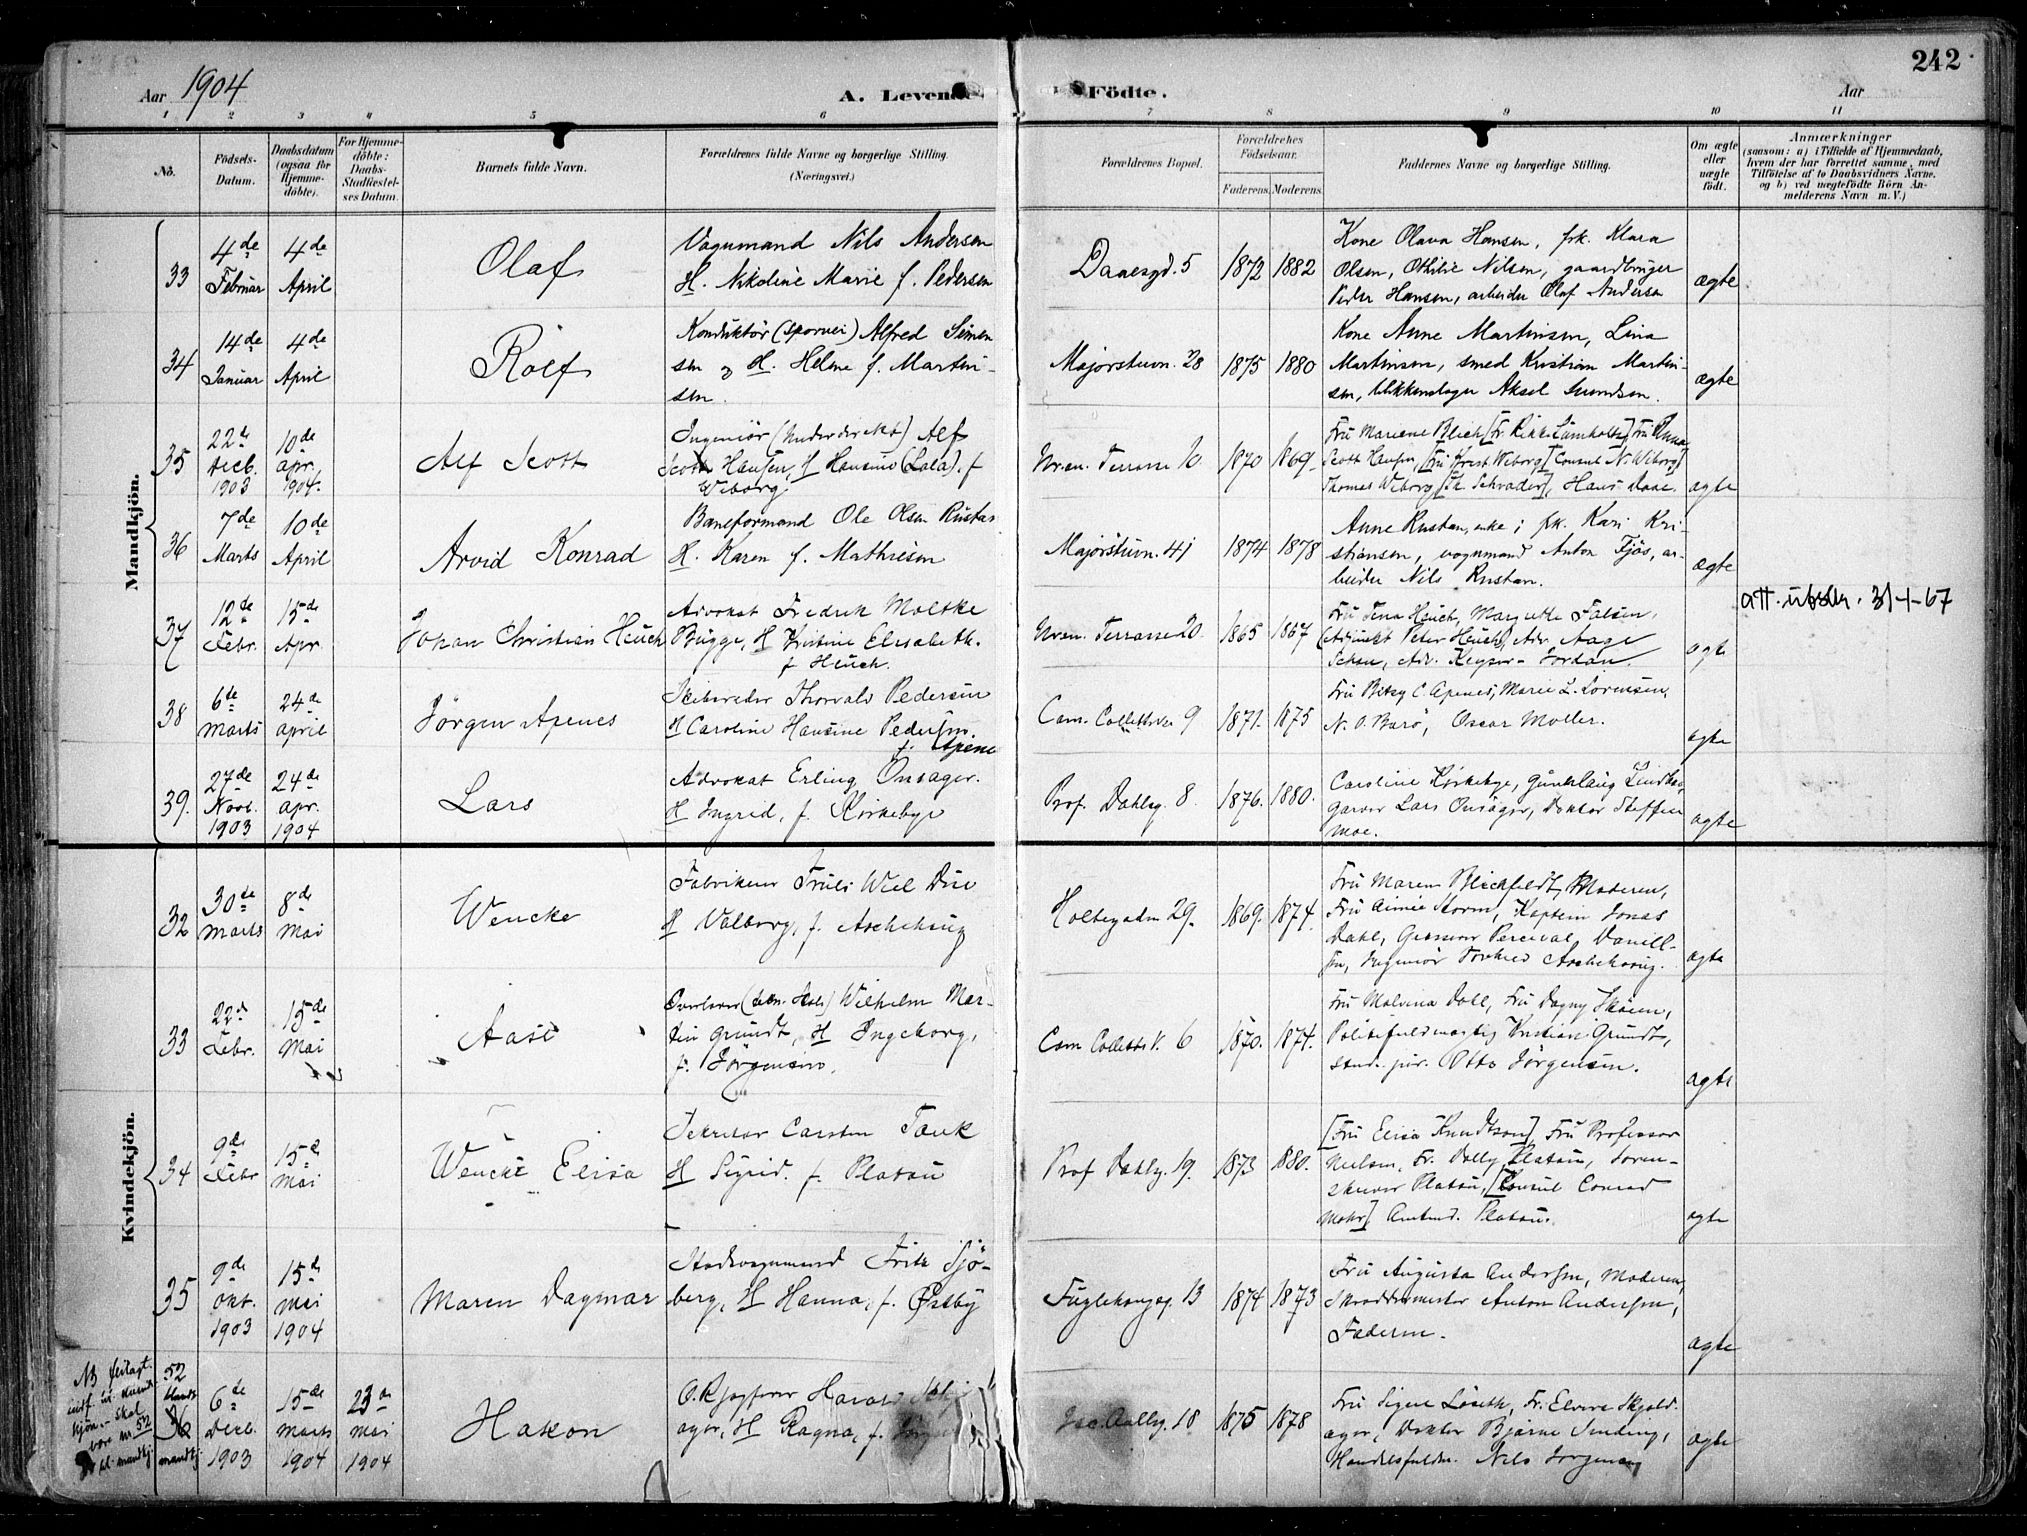 242
Aar 1904
A. Levende Födte.
Aar
1 2 3 4 5 6 7 8 9 10 11
No.
Födsels-
Datum.
Daabsdatum
(ogsaa for
Hjemme-
döbte).
For Hjemme-
döbte:
Daabs-
Stadfæstel-
ses Datum.
Barnets fulde Navn.
Forældrenes fulde Navne og borgerlige Stilling.
(Næringsvei.)
Forældrenes Bopæl.
Forældrenes
Födselsaar.
Faderens. Moderens.
Faddernes Navne og borgerlige Stilling.
Om ægte
eller
uægte
födt.
Anmærkninger
(saasom: a) i Tilfælde af Hjemmedaab,
hvem der har forrettet samme, med
Tilföielse af to Daabsvidners Navne.
og b) ved uægtefödte Börn An-
melderens Navn m. V.)
Mandkjön.
33
4de
Februar
4de
April
Olaf
Vognmand Nils Andersen
H. Nikoline Marie f. Pedersen
Daaesgd. 5
1872 1882
Kone Olava Hansen, frk. Klara
Olsen, Othilie Nilsen, gaardbruger
Peder Hansen, arbeider Olaf Andersen
ægte
34
14de
Januar
4de
April
Rolf
Konduktör (sporvei) Alfred Simen
sen og H. Helene f. Martin-
sen.
Majorstuvn. 28
1875 1880
Kone Anne Martinsen, Lina
Martinsen, smed Kristian Martin-
sen, blikkenslager Aksel
ægte
35
22de
Decb.
1903
10de
apr.
1904.
Alf Scott
Ingeniör Alf
Scott Hansen, H Hansine (Lala). f
Wiborg
Terrasse 10
1870 1869.
Fru Mariane Blich Fru Anna
Scott Hansen, [Fru Krest. Wiborg] [Consul N. Wiborg]
Thomas Wiborg [Th. Schrader], Hans Daae.
ægte
36
7de
Marts
10de
April
Arvid Konrad
Baneformand Ole Olsen Rustan
H. Karen f. Mathiesen
Majorstuvn. 41
1874 1878
Anne Rustan, enke; frk. Kari Kri-
stiansen, vognmand Anton Fjös, ar-
beider Nils Rustan.
ægte
37
12de
Febr.
15de
Apr.
Johan Christian Heuch
Advokat Fredrik Moltke
Bugge, H Kristine Elisabeth.
f Heuch.
Terrasse 20.
1865 1867
Fru Tina Heuch, Margrethe Falsen,
(Adjunkt Peter Heuch), Adv. Aage
Schou, Adv. Keyser-Jordan.
ægte
att. utstdr. 31-1-67
38
6te
Marts
24de
april
Jörgen Apenes
Skibsreder Thorvald Pedersen
H Caroline Hansine Pedersen.
f. Apene
Cam. Collettsvei 9
1871. 1875
Fru Betsy C. Apenes, Marie L. Sorensen,
N. O. Barö, Oscar Moller.
ægte
39.
27de
Novb.
1903
24de
apr.
1904
Lars
Advokat Erling Onsager.
H Ingrid, f. Kirkebye
Prof. Dahlsg. 8.
1876. 1880.
Caroline Kirkebye, Gunerlaug
Garver Lars Onsager, Doktor Steffen
Moe.
ægte
Kvindekjön.
32
30de
Marts
8de
Mai
Wencke
Fabrikeier Truls Wiel
H Valborg, f. Aschehoug
Holtegaden 29.
1869. 1874.
Fru Maren Blichfeldt, Moderen,
Fru Aimée Storm, Kaptein Jonas
Dahl, Grosserer Percival Daniel-
sen, Ingeniör Aschehoug.
ægte
33
22de
Febr.
15de
Mai
Aase
Overlærer Wilhelm Mar-
tin Grundt, H Ingeborg,
f. Jörgensen.
Cam Colletts V. 6
1870. 1874.
Fru Malvina Dahl, Fru Dagny Sköien,
Politifuldmægtig Kristian Grundt,
stud. jur. Otto Jörgensen.
ægte
34
9de
Febr
15de
Mai
Wencke Elisa
Sekretær Carsten Tank
H Sigrid. f. Platou
Prof Dahlsg. 19.
1873 1880.
[Fru Elisa Knudtson], Fru Professor
Nielsen, Fr. Dolly Platou, Soren-
skriver Platou, [Consul Conrad
Mohr] Amtmd. Platou.
ægte
35
9de
Okt.
1903
15de
mai
1904
Maren Dagmar
Stadsvognmand Fritz Sjö-
berg, H Hanna, f. Østby
Fuglehaugsg. 13
1874 1873
Fru Augusta Andersen, Moderen,
Skreddermester Anton Andersen,
Faderen.
ægte
NB feilagt
indf. u. kvinde
kjön.- skal
være nr. 52
bl. mandkj.
52
blandt
36
mandkj
6te
Decb.
1903
15de
marts
1904
23de
mai
1904
Hakon
O.Rsagförer Harald
ager, H Ragna, f.
18
1875 1878
Fru Signe Löseth, Fr. Elvire Skjold-
ager, Doktor Bjarne Sinding,
Handelsfuldm. Nils Jorgensen
ægte